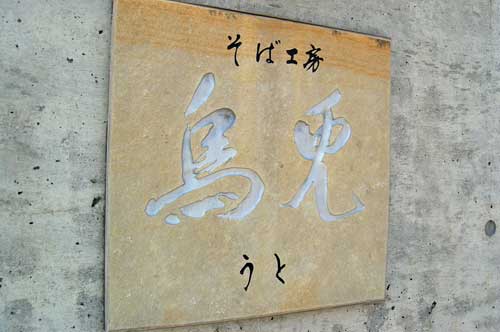 そば工房
烏兎
うと